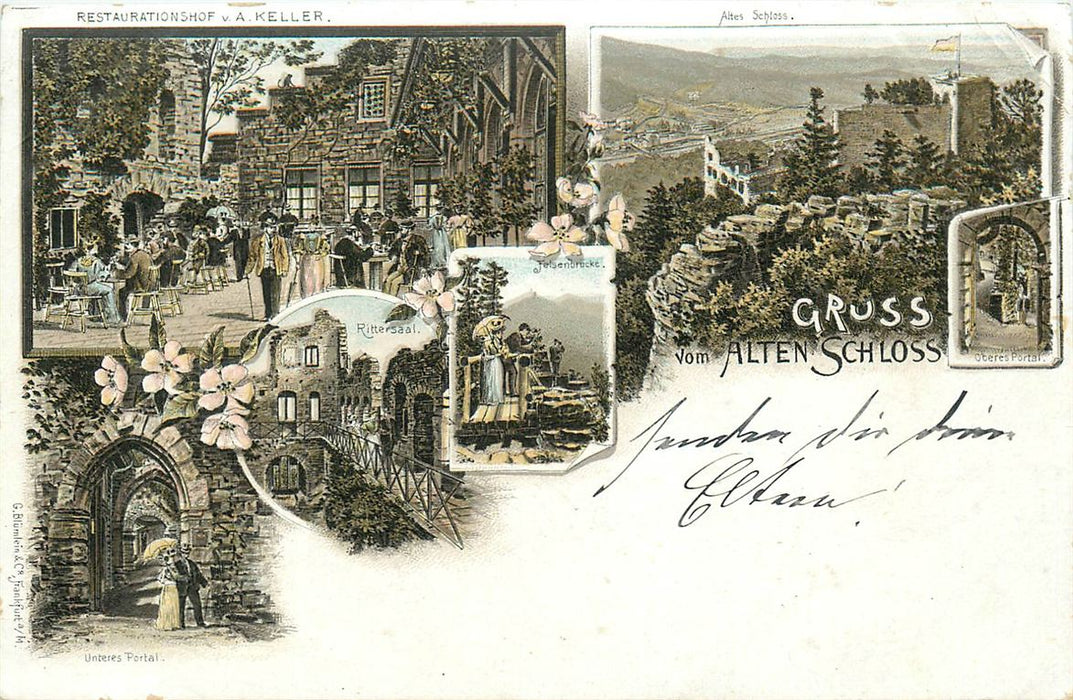 RESTAURATIONSHOF v. A. KELLER.
Altes Schloss.
Felsenbrücke.
Rittersaal.
GRUSS
vom ALTEN SCHLOSS
Oberes Portal.
senden dir deine
Eltern!
G. Blümlein & Co. Frankfurt a/M.
Unteres Portal.